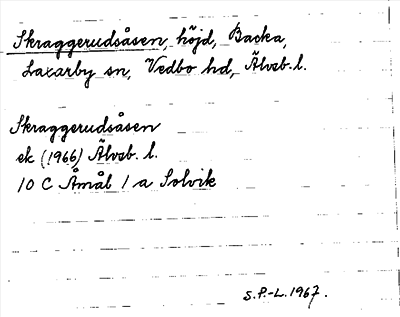 Skraggerudsåsen, höjd, Backa,
Laxarby sn, Vedbo hd, Älvsb. l.
Skraggerudsåsen
ek (1966) Älvsb. l.
10 C Åmål 1 a Solvik
S.P.-L. 1967.